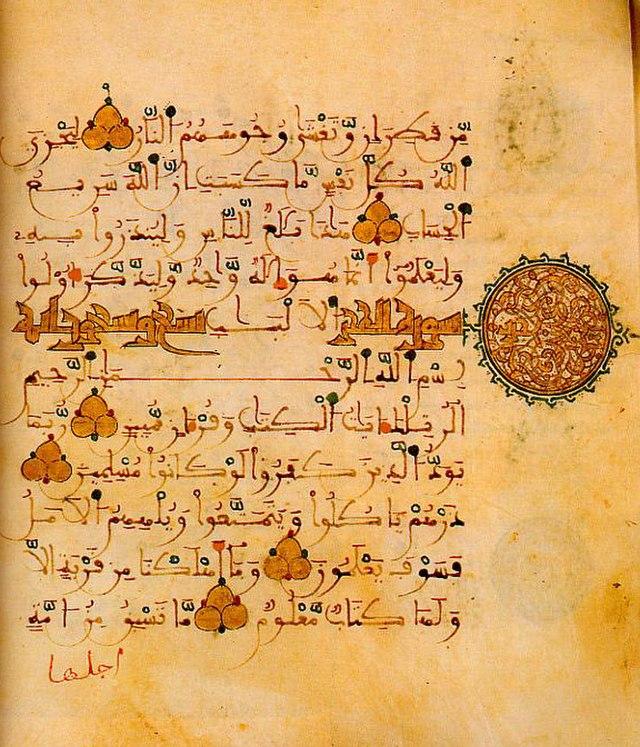 مِّن قَطِرَانٍ وَّتَغْشَى وُجُوهَهُمُ النَّارُ لِيَجْزِيَ
اللَّهُ كُلَّ نَفْسٍ مَّا كَسَبَتْ إِنَّ اللَّهَ سَرِيعُ
الْحِسَابِ هَذَا بَلَغٌ لِّلنَّاسِ وَلِيُنذَرُوا بِهِ
وَلِيَعْلَمُوا أَنَّمَا هُوَ إِلَهٌ وَّاحِدٌ وَلِيَذَّكَّرَ أُوْلُوا
سورة الحجر الالبب تسع وتسعون اية
بِسْمِ اللَّهِ الرَّحْمَنِ الرَّحِيمِ
الر تِلْكَ ءَايَتُ الْكِتَبِ وَقُرْءَانٍ مُّبِينٍ رُّبَمَا
يَوَدُّ الَّذِينَ كَفَرُوا لَوْ كَانُوا مُسْلِمِينَ
ذَرْهُمْ يَاكُلُوا وَيَتَمَتَّعُوا وَيُلْهِهِمُ الْأَمَلُ
فَسَوْفَ يَعْلَمُونَ وَمَا أَهْلَكْنَا مِن قَرْيَةٍ إِلَّا
وَلَهَا كِتَابٌ مَّعْلُومٌ مَّا تَسْبِقُ مِنْ أُمَّةٍ
اجلها